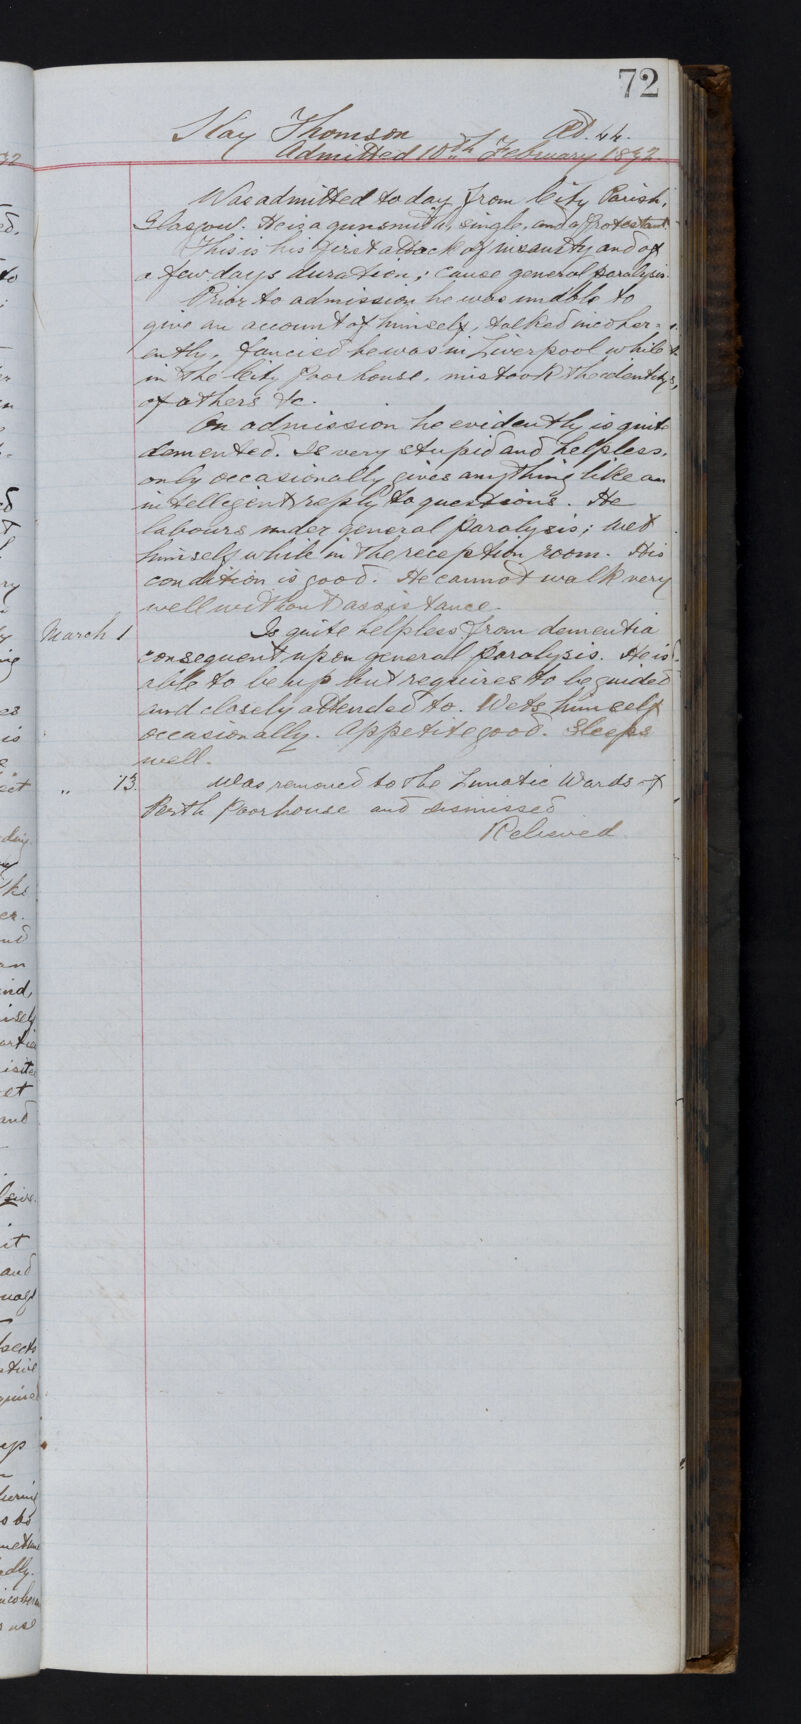 72
Hay Thomson Æt. 44.
Admitted 10th February 1872
Was admitted today from City Parish,
Glasgow. He is a gunsmith, single, and a protestant.
This is his first attack of insanity and of
a few days duration; cause general paralysis.
Prior to admission he was unable to
give an account of himself, talked incoher-
ently, fancied he was in Liverpool while
in the City Poorhouse, mistook the identity
of others &c.
On admission he evidently is quite
demented. Is very stupid and helpless,
only occasionally gives anything like an
intelligent reply to questions. He
labours under general paralysis; wet
himself while in the reception room. His
condition is good. He cannot walk very
well without assistance.
March 1 Is quite helpless from dementia
consequent upon general paralysis. He is
able to be up but requires to be guided
and closely attended to. Wets himself
occasionally. Appetite good. Sleeps
well.
" 13. Was removed to the Lunatic Wards of
Perth Poorhouse and dismissed
Relieved